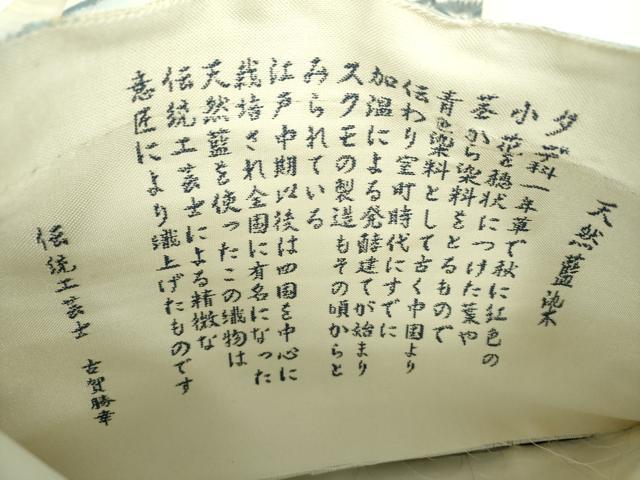 天然藍染
タデ科一年草で秋に紅色の
小花を穂状につけた葉や
茎から染料をとるもので
青色染料として古く中国より
伝わり室町時代にすでに
加温による発酵建てが始まり
スクモの製造もその頃からと
みられている
江戸中期以後は四国を中心に
栽培され全国に有名になった
天然藍を使ったこの織物は
伝統工芸士による精微な
意匠により織上げたものです
伝統工芸士 古賀勝幸